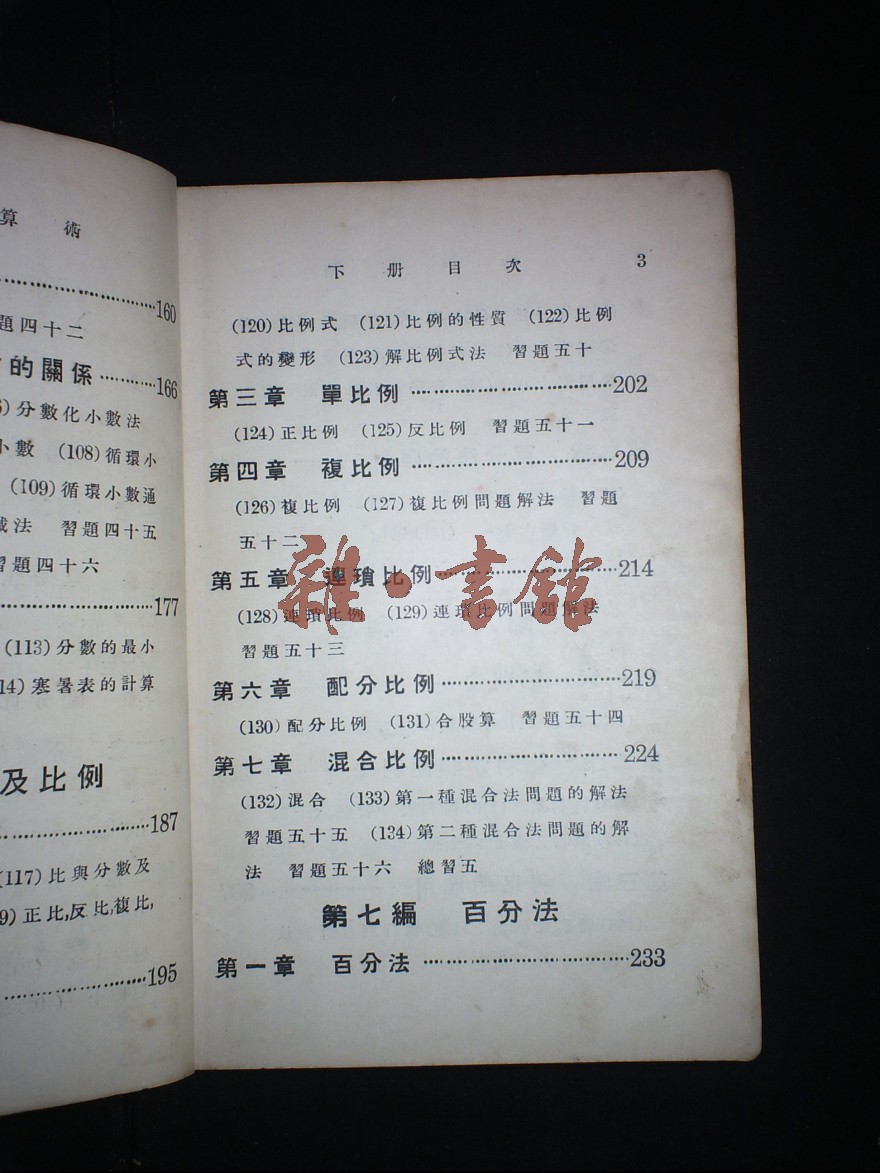 算術
160
題四十二
的關係 166
分數化小數法
小數 (108)循環小
(109)循環小數通
減法 習題四十五
習題四十六
177
(113)分數的最小
14)寒暑表的計算
及比例
187
(117)比與分數及
9)正比,反比,複比,
195
下册目次 3
(120)比例式 (121)比例的性質 (122)比例
式的變形 (123)解比例式法 習題五十
第三章 單比例 202
(124)正比例 (125)反比例 習題五十一
第四章 複比例 209
(126)複比例 (127)複比例問題解法 習題
五十二
第五章 連瑣比例 214
(128)連瑣比例 (129)連瑣比例問題解法
習題五十三
第六章 配分比例 219
(130)配分比例 (131)合股算 習題五十四
第七章 混合比例 224
(132)混合 (133)第一種混合法問題的解法
習題五十五 (134)第二種混合法問題的解
法 習題五十六 總習五
第七編 百分法
第一章 百分法 233
雜·書館